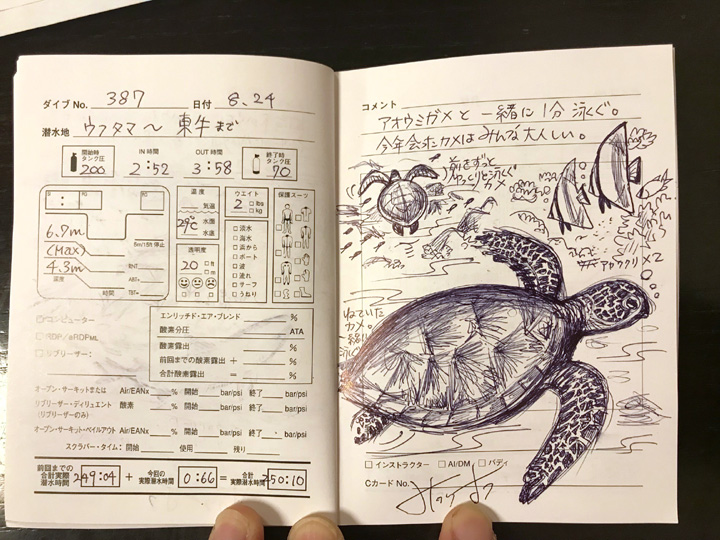 ダイブ No. 387 日付 8.24
潜水地 ウフタマ〜東牛まで
開始時タンク圧 200 IN時間 2:52 OUT時間 3:58 終了時タンク圧 70
温度 ウエイト 保護スーツ
気温 2 lbs kg
29℃ 水面
水底
6.7m
(Max)
5m/15ft 停止
4.3m
RNT
ART+
時間 TBT=
透明度
20 ft m
淡水
海水
浜から
ボート
波
流れ
サーフ
うねり
コンピューター
RDP/eRDPML
リブリーザー:
エンリッチド・エア・ブレンド %
酸素分圧 ATA
酸素露出 %
前回までの酸素露出 + %
合計酸素露出 = %
オープン・サーキットまたは Air/EANx % 開始 bar/psi 終了 bar/psi
リブリーザー・ディリュエント 酸素 % 開始 bar/psi 終了 bar/psi
(リブリーザーのみ)
オープン・サーキット・ベイルアウト Air/EANx % 開始 bar/psi 終了 bar/psi
スクラバー・タイム:開始 使用 残り
前回までの合計実際潜水時間 249:04 + 今回の実際潜水時間 0:66 = 合計実際潜水時間 250:10
コメント
アオウミガメと一緒に1分泳ぐ。
今年会ホンカメはみんな大人しい。
前をずっと
ゆっくりと泳ぐ
カメ
×2
ねていた
カメ。
一緒に
泳ぐ
インストラクター AI/DM バディ
Cカード No.